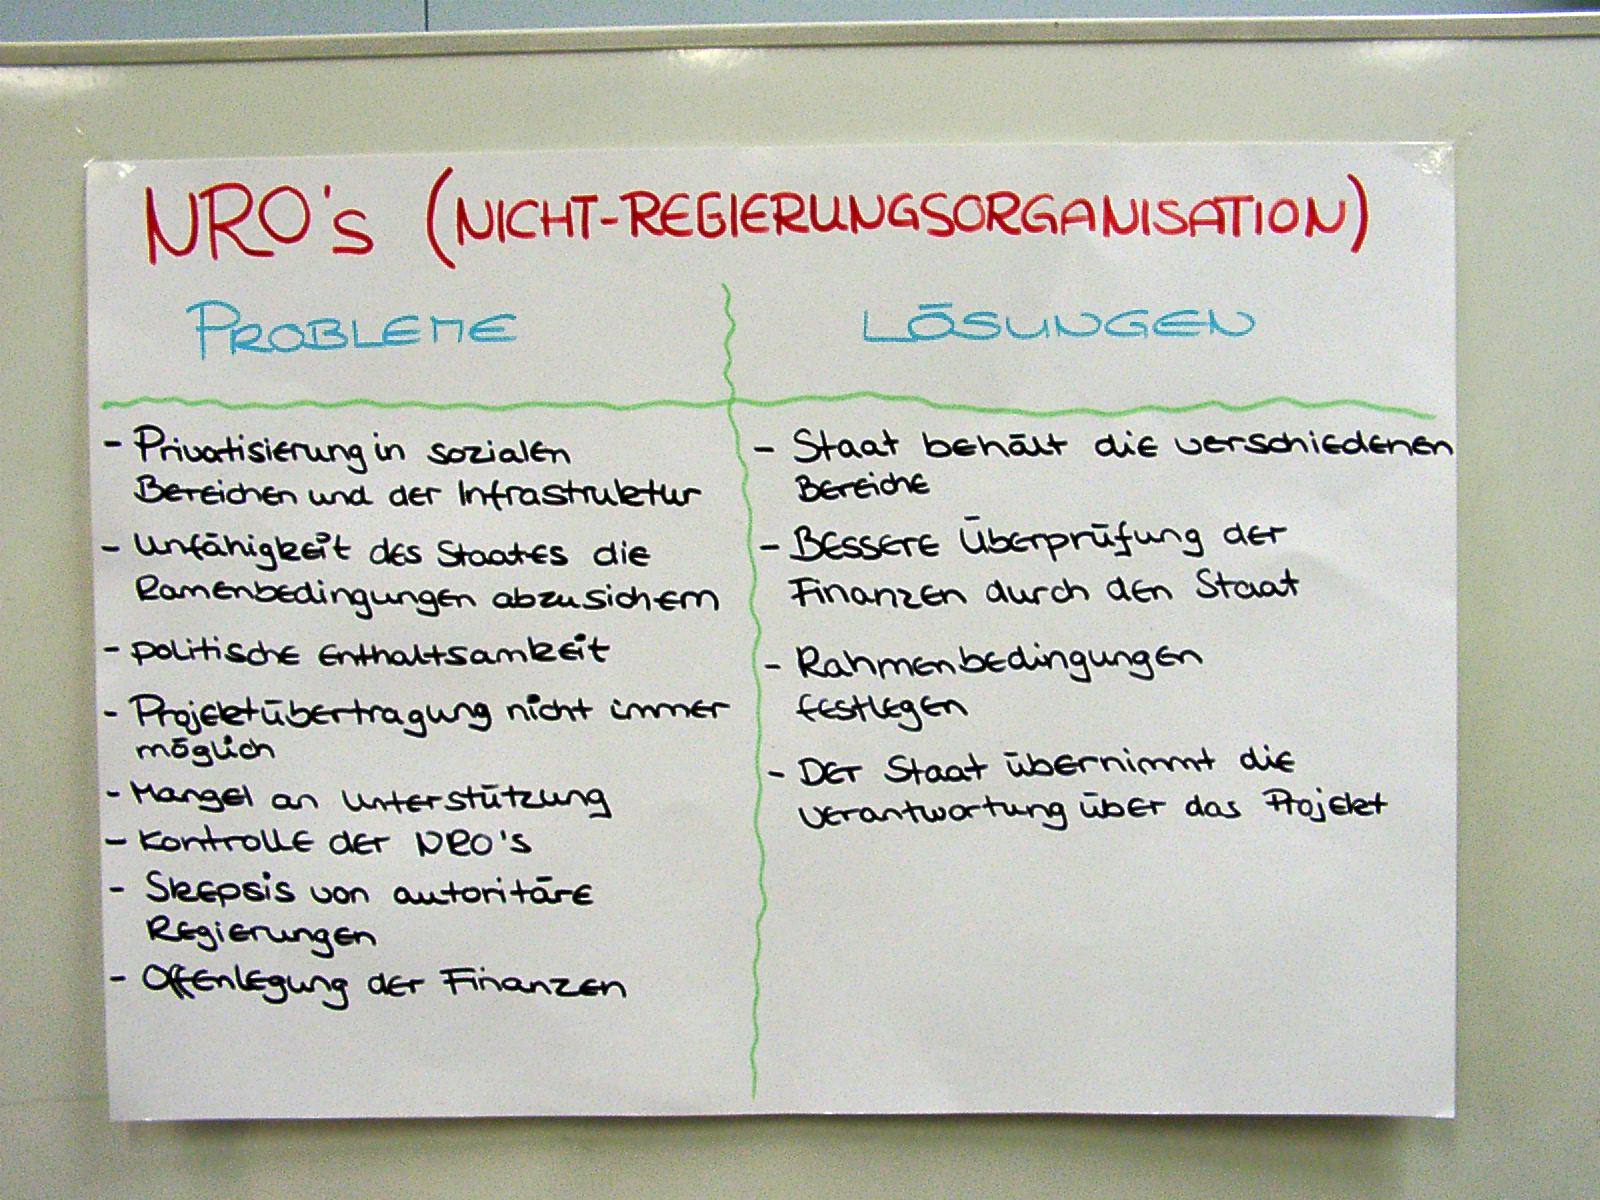 NRO's (NICHT-REGIERUNGSORGANISATION)
PROBLEME
- Privatisierung in sozialen
Bereichen und der Infrastruktur
- Unfähigkeit des Staates die
Ramenbedingungen abzusichern
- politische Enthaltsamkeit
- Projektübertragung nicht immer
möglich
- Mangel an Unterstützung
- Kontrolle der NRO's
- Skepsis von autoritäre
Regierungen
- Offenlegung der Finanzen
LÖSUNGEN
- Staat behält die verschiedenen
Bereiche
- Bessere Überprüfung der
Finanzen durch den Staat
- Rahmenbedingungen
festlegen
- Der Staat übernimmt die
Verantwortung über das Projekt